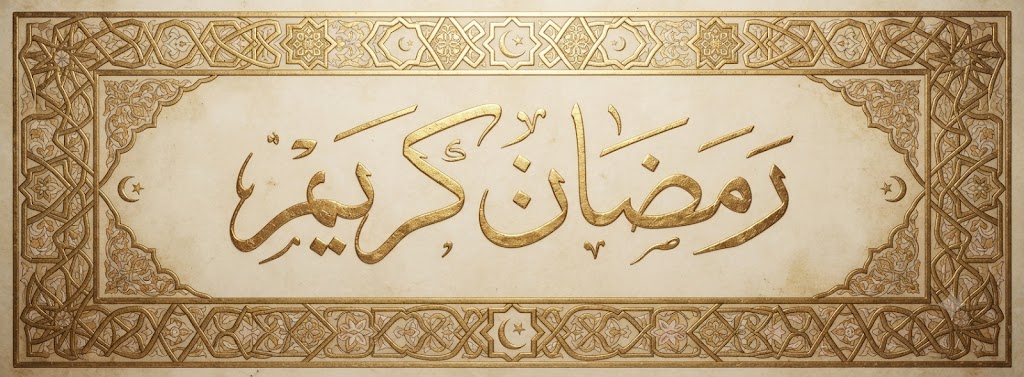 رَمَضَان كَرِيم